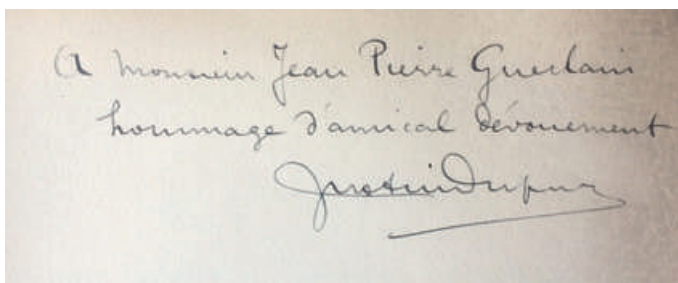 A Monsieur Jean Pierre Guerlain
hommage d'amical dévouement
Justin Dupuy